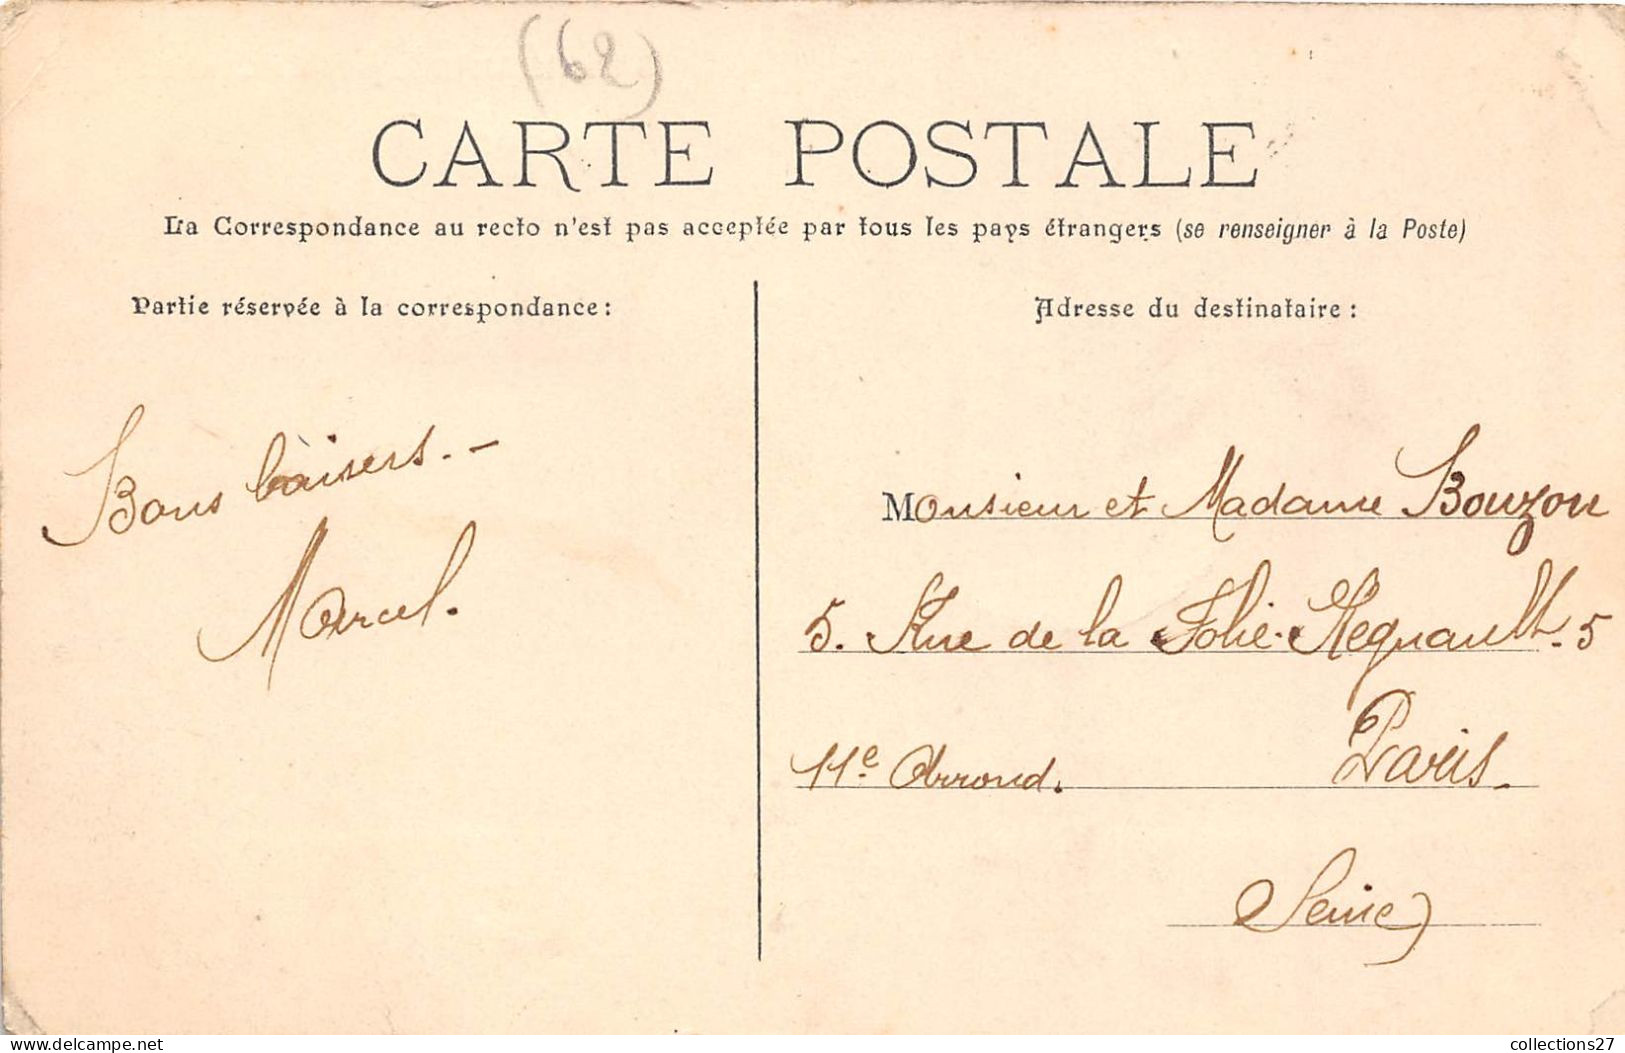 (62)
CARTE POSTALE
La Correspondance au recto n'est pas acceptée par tous les pays étrangers (se renseigner à la Poste)
Partie réservée à la correspondance :
Bons baisers. -
Marcel.
Adresse du destinataire :
Monsieur et Madame Bouzou
5. Rue de la Folie-Regnault. 5
11e Arrond. Paris.
Seine
collections27